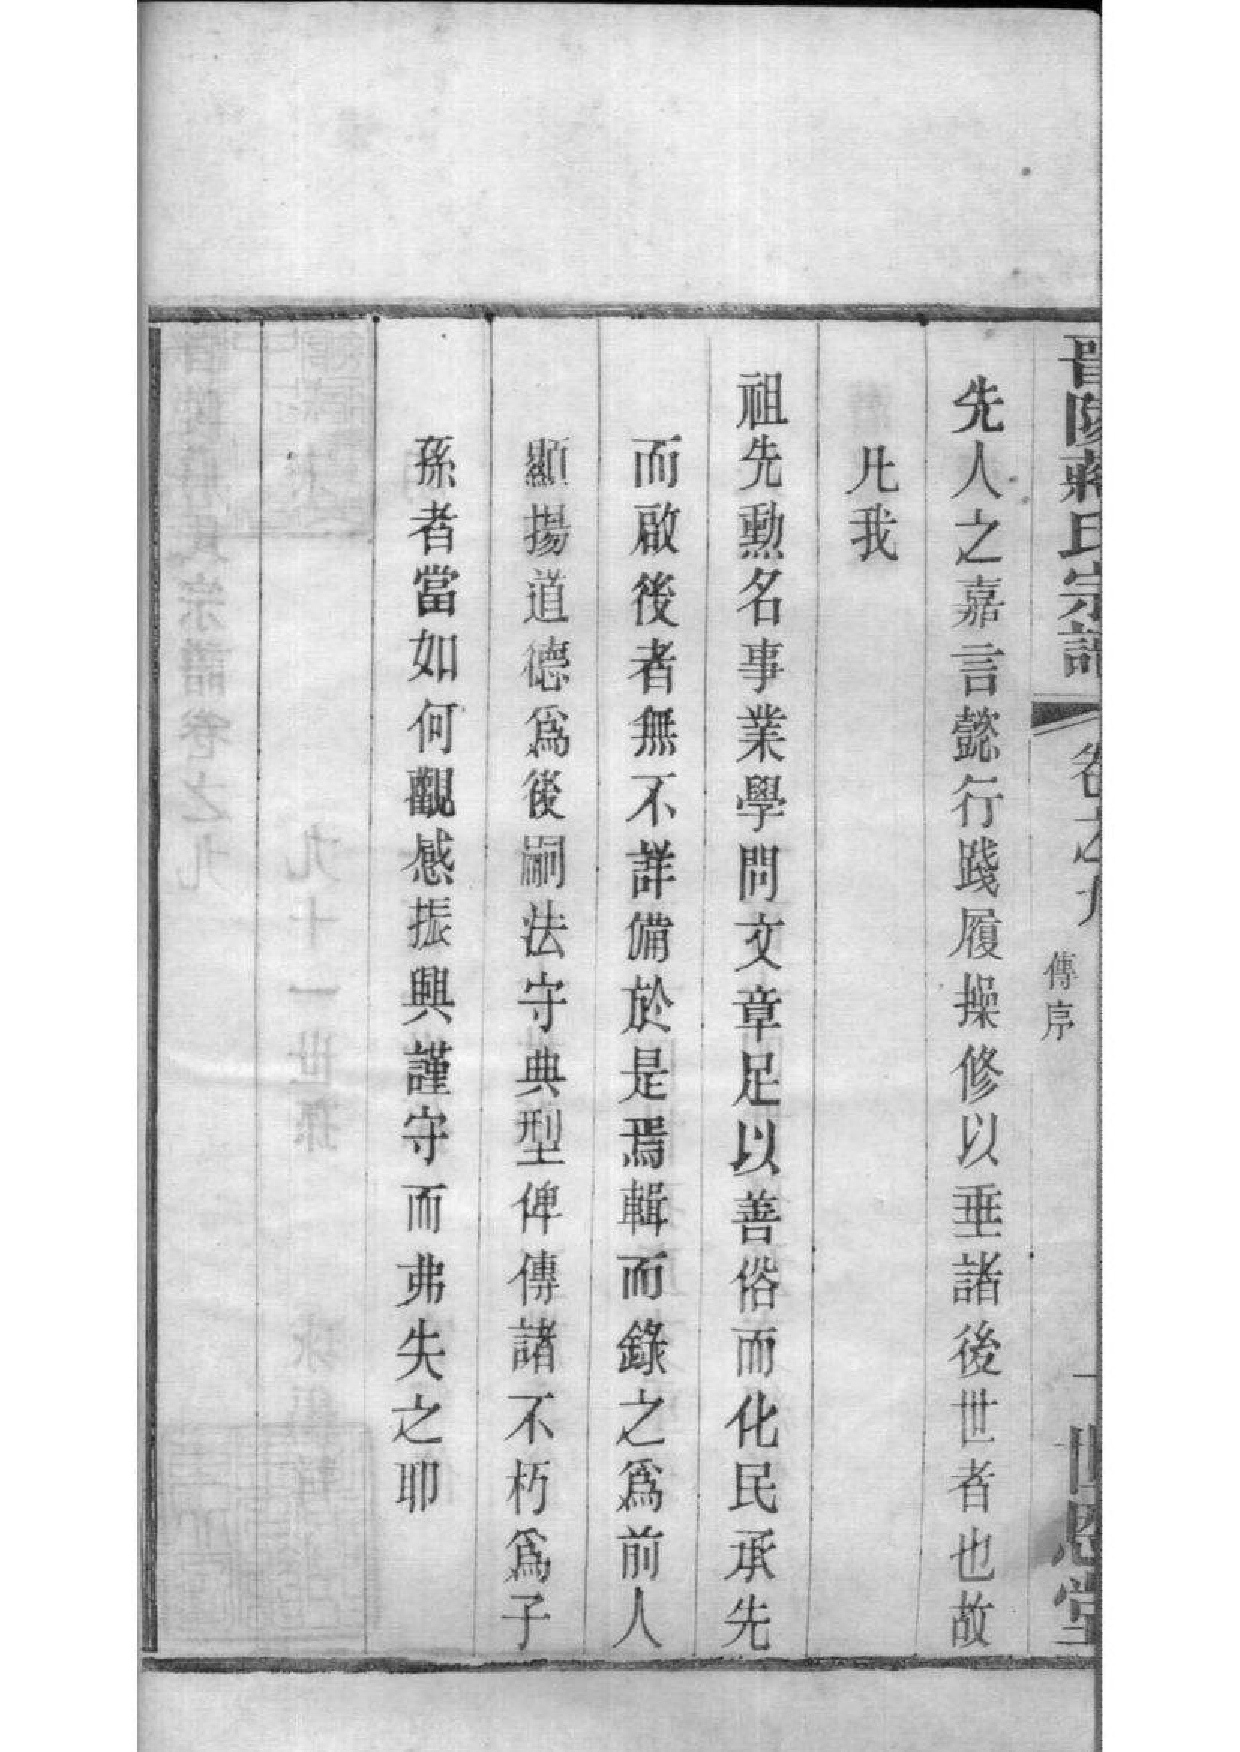 晋陵蔣氏宗譜
卷之九
傳序
一
世恩堂
先人之嘉言懿行踐履操修以垂諸後世者也故
凡我
祖先勲名事業學問文章足以善俗而化民承先
而啟後者無不詳備於是焉輯而錄之爲前人
顯揚道德爲後嗣法守典型俾傳諸不朽爲子
孫者當如何觀感振興謹守而弗失之耶